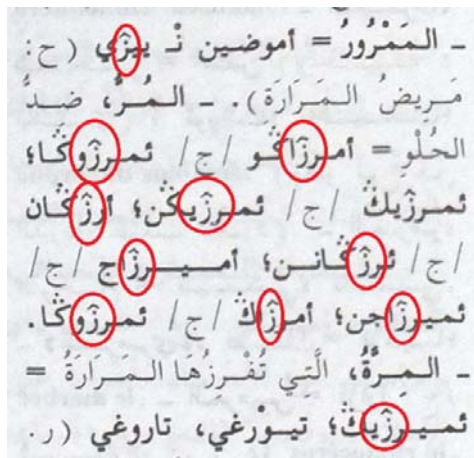 ـ المَمْرُورُ = أموضين نْ ييࢲي (ح:
مَرِيضُ المَرَارَة). ـ المُرُّ، ضِدُّ
الحُلْوِ = أمرࢲاڭو /ج/ ئمرࢲوڭا؛
ئمرࢲيڭ /ج/ ئمرࢲيڭن؛ أرࢲڭان
/ج/ ئرࢲڭانن؛ أميرࢲاج /ج/
ئميرࢲاجن؛ أمرࢲاڭ /ج/ ئمرࢲوڭا.
ـ المِرَّةُ، الَّتي تُفْرِزُهَا المَرَارَةُ =
ئميرࢲيڭ؛ تيوْرغي، تاروغي (ر.